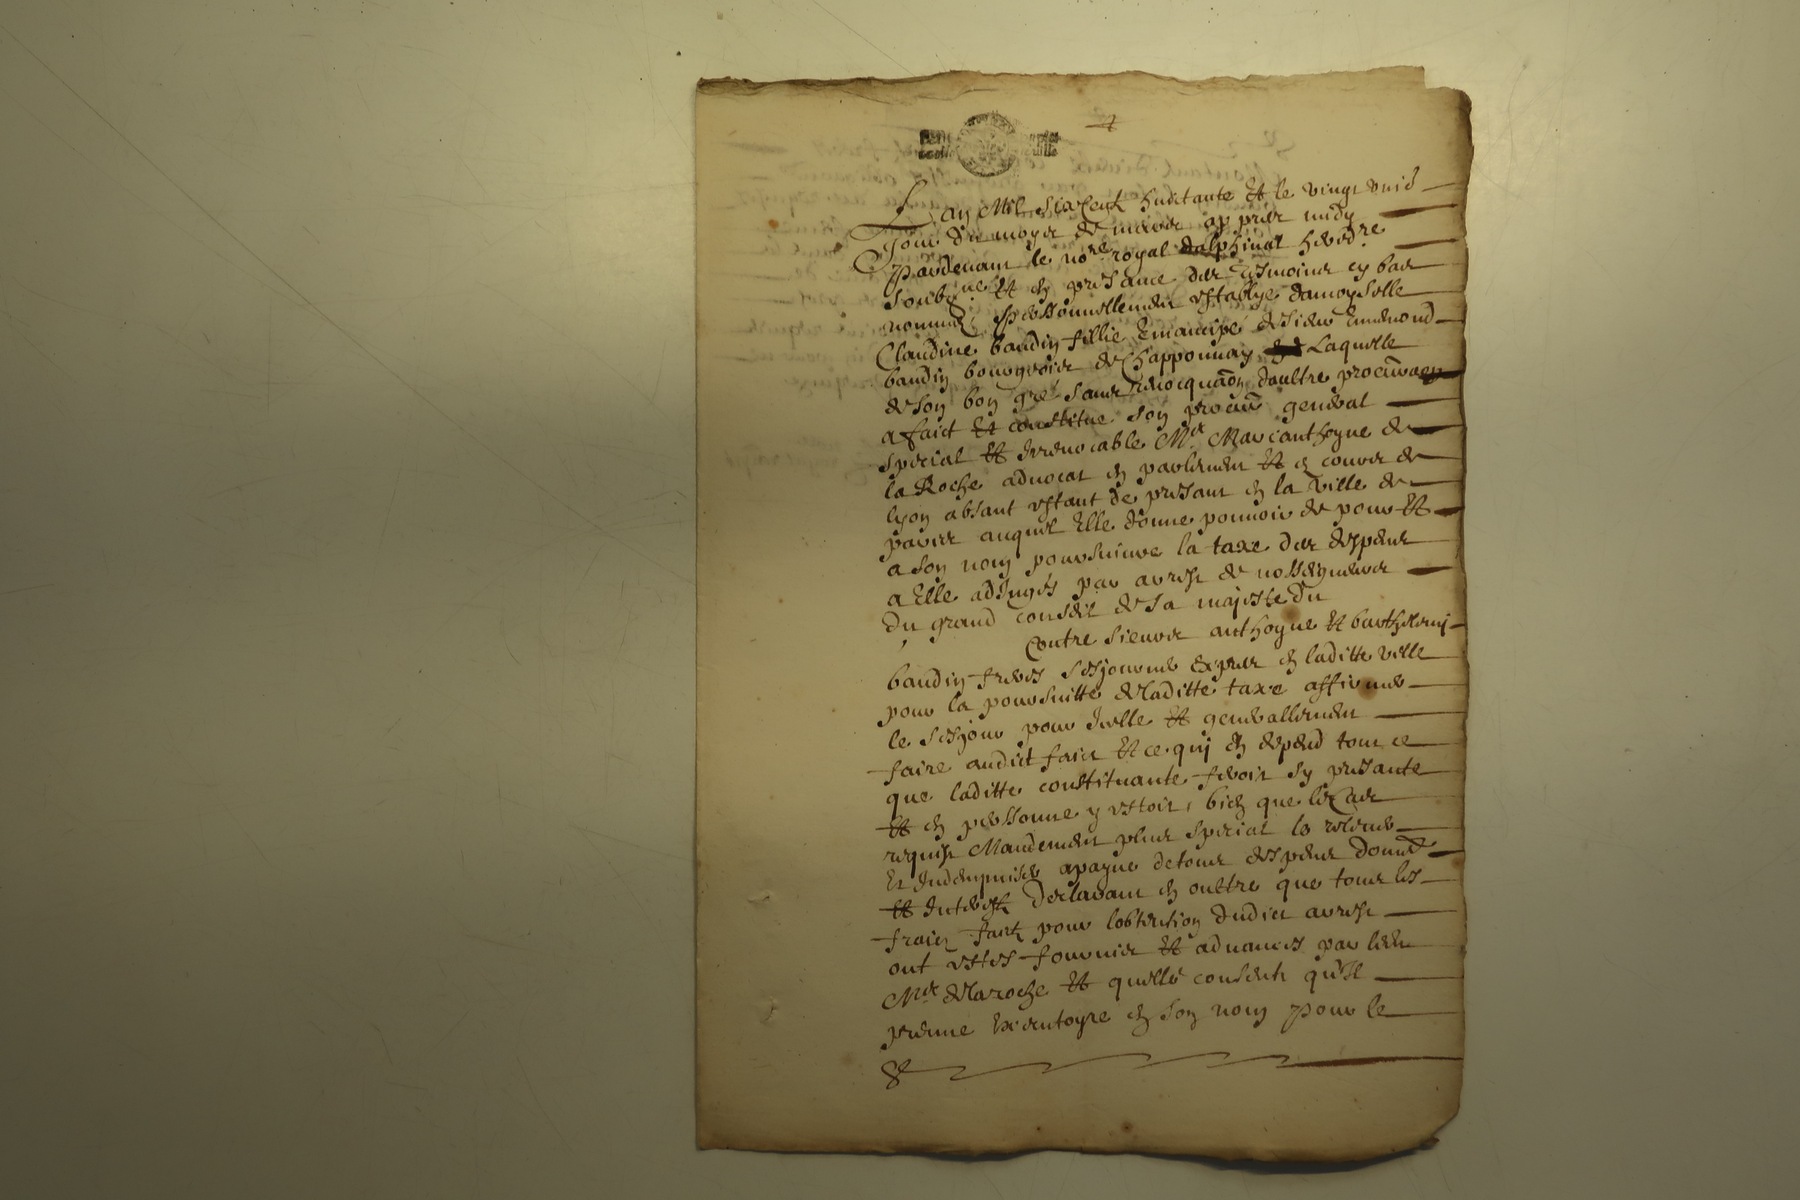 4
L'an Mil six Cent huictante Et le vingt uniesme
Jour du moys de mars appres midy
pardevant le no.re royal dalphinal hered.re
soubz.né Et en presance des tesmoins cy bas
nommés, personnellement establye damoyselle
Claudine baudin fillie Emancipé de sieur Ennemond
baudin bourgeois de Chapponnay Laquelle
de son bon gré sans revocquaon daultre procureur
a faict Et constitue son procur general
special Et Irrevocable M.re Marcanthoyne de
la Roche advocat en parlement Et en cours de
lyon absant estant de presant en la ville de
paris auquel Elle donne pouvoir de pour Et
a son nom poursuivre la taxe des despens
a Elle adjugés par arrest de nosseigneurs
du grand conseil de sa majesté du
Contre sieurs anthoyne Et barthelemy
baudin freres sesjourner expres en laditte ville
pour la poursuitte de laditte taxe affirmer
le sesjour pour Icelle Et generallement
faire audict faict Et ce quy en depend tout ce
que laditte constituante feroit sy presante
Et en personne y estoit, bien que le Cas
requist Mandement plus special le relever
Et Indempniser a payne de tous despens domms
Et Interestz declarant en oultre que tous les
frais faictz pour lobtention dudict arrest
ont estes fournies Et advances par ledit
M.re delaroche Et quelle consent qu'Il
prenne Executoyre en son nom pour le